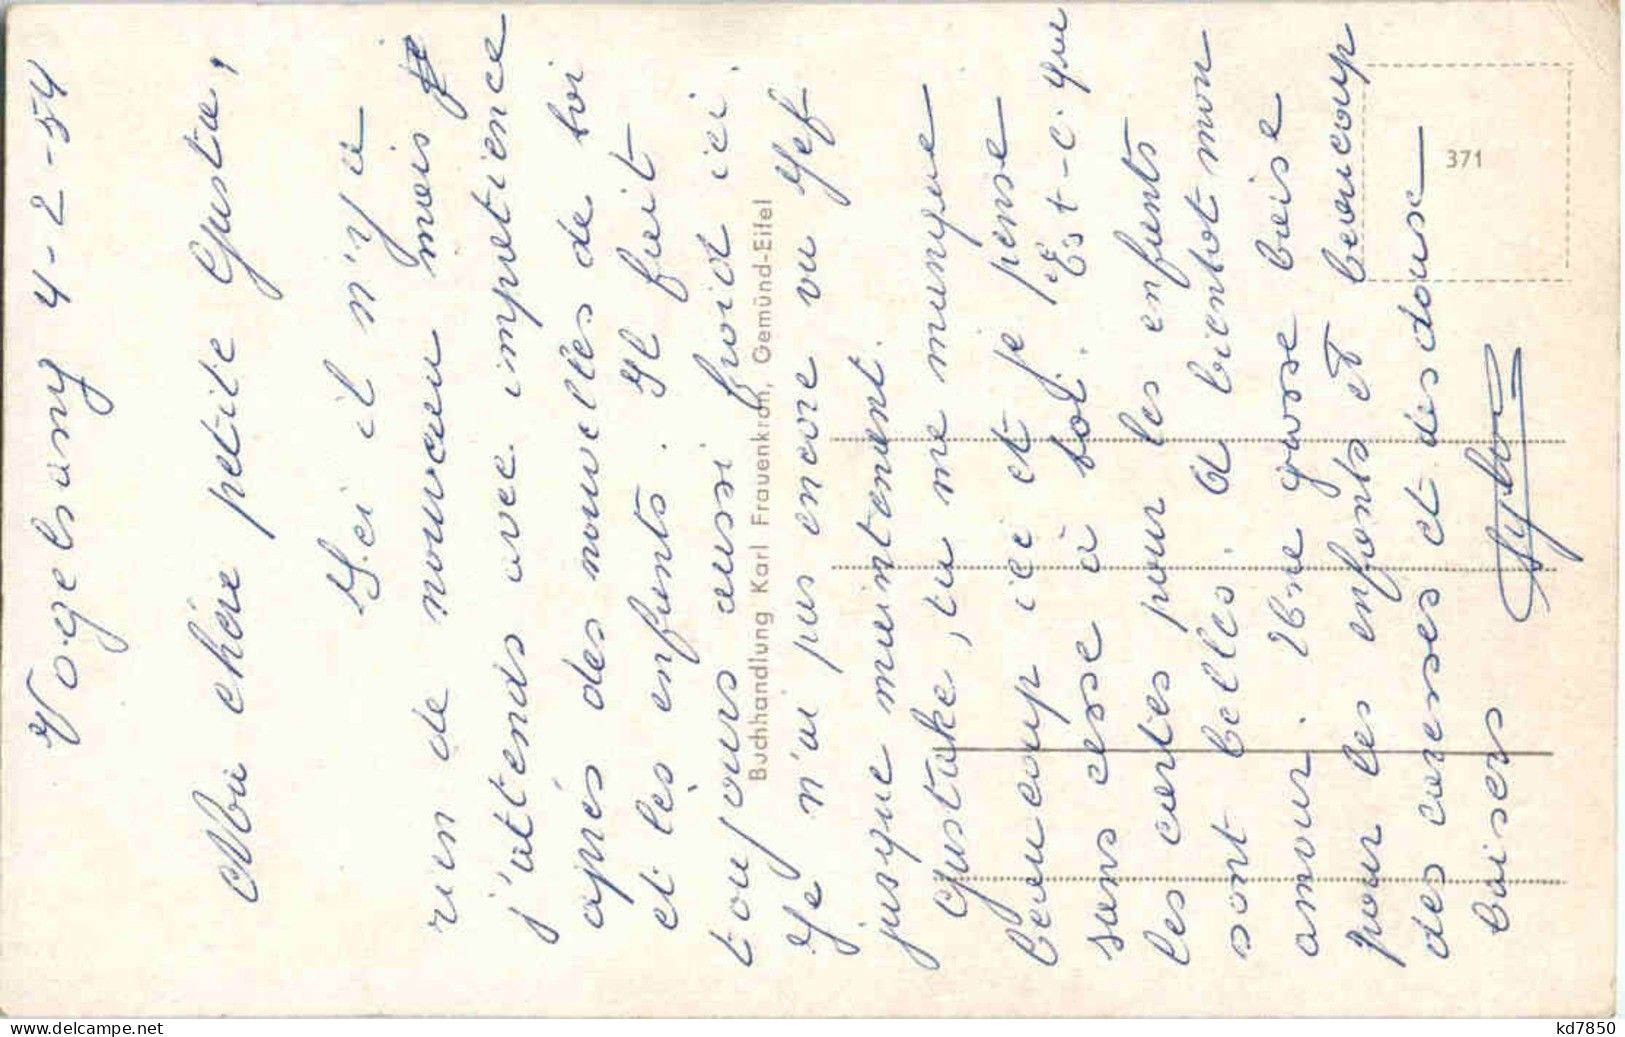 Vogelsang 4-2-54
Ma chère petite Gusta,
Ici il n'y a
rien de nouveau mais je
j'attends avec impatience
aprés des nouvelles de toi
et les enfants. Il fait
toujours aussi froid ici.
Je n'ai pas encore vu Jef
jusque maintenant.
Gustake, tu me manque
beaucoup ici et je pense
sans cesse à toi. Est-c-que
les cartes pour les enfants
sont belles. A bientot mon
amour. Une grosse baise
pour les enfants et beaucoup
des caresses et des douse
baisers
Buchhandlung Karl Frauenkron, Gemünd-Eifel
371
www.delcampe.net
kd7850